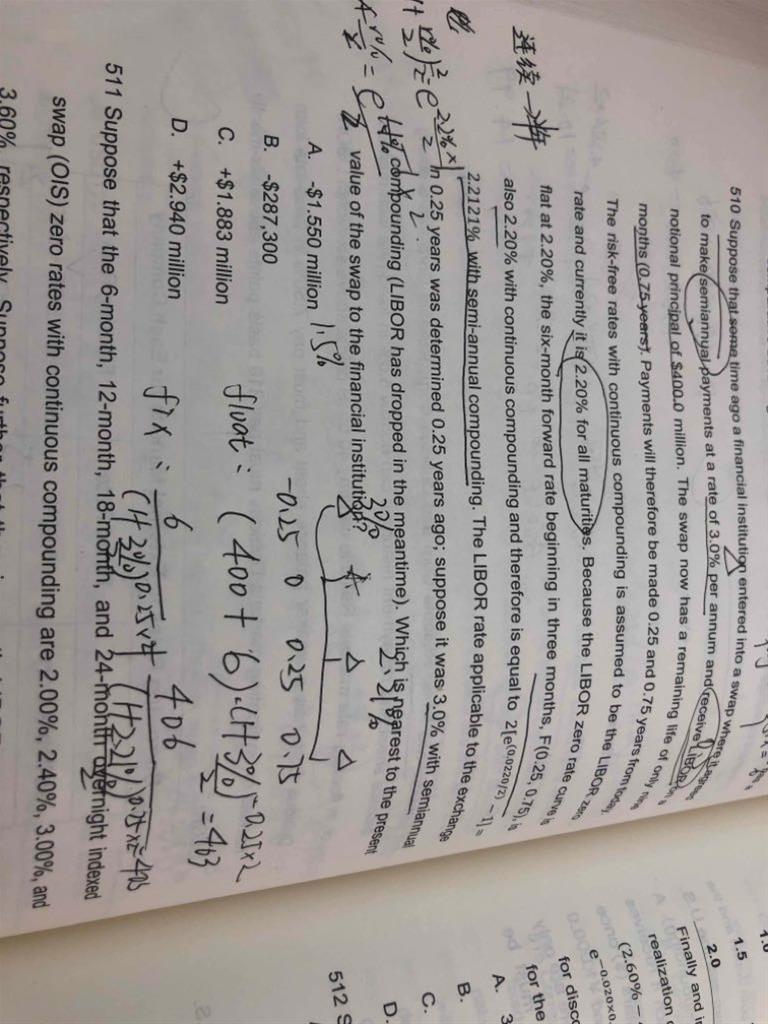 510 Suppose that some time ago a financial institution entered into a swap where it agreed
to make semiannual payments at a rate of 3.0% per annum and receive LIBOR on a
notional principal of $400.0 million. The swap now has a remaining life of only nine
months (0.75 years). Payments will therefore be made 0.25 and 0.75 years from today.
The risk-free rates with continuous compounding is assumed to be the LIBOR zero
rate and currently it is 2.20% for all maturities. Because the LIBOR zero rate curve is
flat at 2.20%, the six-month forward rate beginning in three months, F(0.25, 0.75), is
also 2.20% with continuous compounding and therefore is equal to 2[e^(0.0220/2) - 1] =
2.2121% with semi-annual compounding. The LIBOR rate applicable to the exchange
in 0.25 years was determined 0.25 years ago; suppose it was 3.0% with semiannual
compounding (LIBOR has dropped in the meantime). Which is nearest to the present
value of the swap to the financial institution?
A. -$1.550 million
1.5%
B. -$287,300
C. +$1.883 million
D. +$2.940 million
连续
3%
2.21%
-0.25 0 0.25 0.75
float: (400+6)·(1+3%/2)^-0.25×2 = 403
fix: 6
406
511 Suppose that the 6-month, 12-month, 18-month, and 24-month overnight indexed
swap (OIS) zero rates with continuous compounding are 2.00%, 2.40%, 3.00%, and
3.60% respectively. Suppose further that the
1.0
1.5
2.0
Finally and
realization
(2.60% -
e^-0.020×0.
for disco
for the
A. 3
B.
C.
D.
512 S